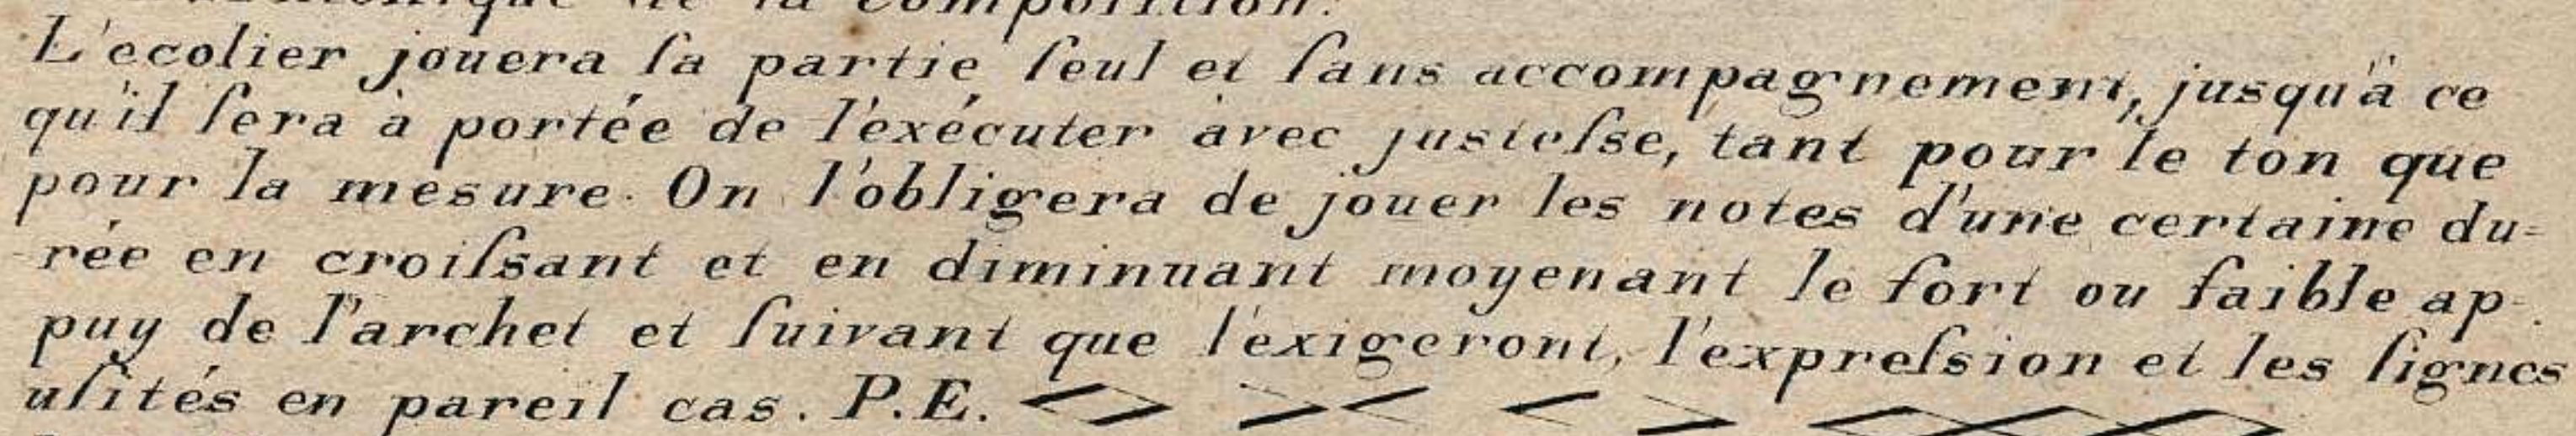 de la composition.
L'ecolier jouera ſa partie ſeul et ſans accompagnement, jusqu'à ce
qu'il ſera à portée de l'exécuter avec justeſse, tant pour le ton que
pour la mesure. On l'obligera de jouer les notes d'une certaine du=
rée en croiſsant et en diminuant moyenant le fort ou faible ap-
puy de l'archet et ſuivant que l'exigeront, l'expreſsion et les ſignes
uſités en pareil cas. P.E. <> >< < > <><><>